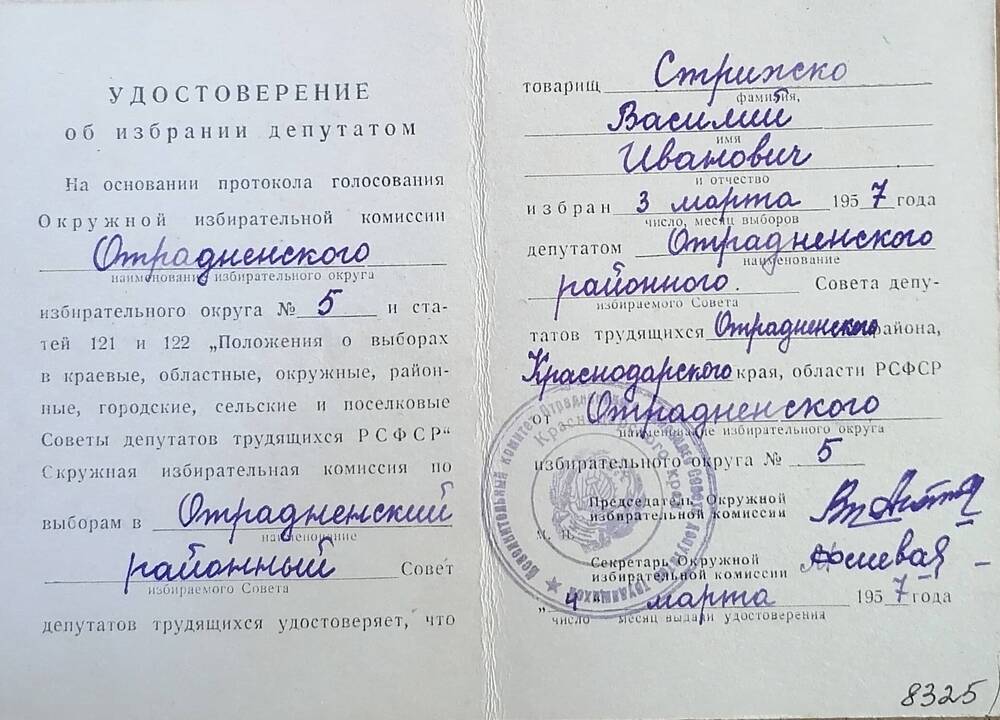 УДОСТОВЕРЕНИЕ
об избрании депутатом
На основании протокола голосования
Окружной избирательной комиссии
Отрадненского
наименование избирательного округа
избирательного округа № 5 и ста-
тей 121 и 122 „Положения о выборах
в краевые, областные, окружные, район-
ные, городские, сельские и поселковые
Советы депутатов трудящихся РСФСР“
Окружная избирательная комиссия по
выборам в Отрадненский
наименование
районный Совет
избираемого Совета
депутатов трудящихся удостоверяет, что
товарищ Стрижко
фамилия,
Василий
имя
Иванович
и отчество
избран 3 марта 1957 года
число, месяц выборов
депутатом Отрадненского
наименование
районного. Совета депу-
избираемого Совета
татов трудящихся Отрадненского района,
Краснодарского края, области РСФСР
от Отрадненского
наименование избирательного округа
избирательного округа № 5
Председатель Окружной
избирательной комиссии
М. П.
Секретарь Окружной
избирательной комиссии
„4“ марта 1957 года
число месяц выдачи удостоверения
Исполнительный комитет Отрадненского Совета депутатов трудящихся
Краснодарского края
8325